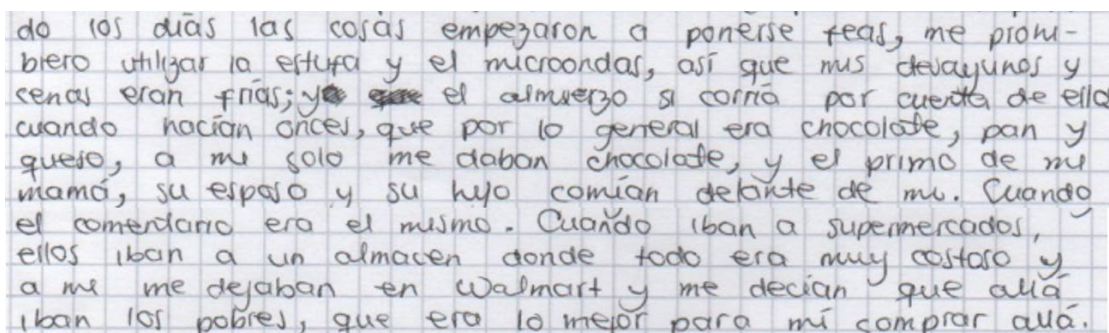 do los duás las cosás empezaron a ponerse feas, me prohi-
biero utilizar la estufa y el microondas, así que mis desayunos y
cenas eran frías; ya el almuerzo si corría por cuenta de ello
cuando hacían onces, que por lo general era chocolate, pan y
queso, a mi solo me daban chocolate, y el primo de mi
mamá, su esposa y su hijo comían delante de mi. Cuando
el comentario era el mismo. Cuando iban a supermercados,
ellos iban a un almacen donde todo era muy costoso y
a mi me dejaban en Walmart y me decían que allá
iban los pobres, que era lo mejor para mí comprar allá.